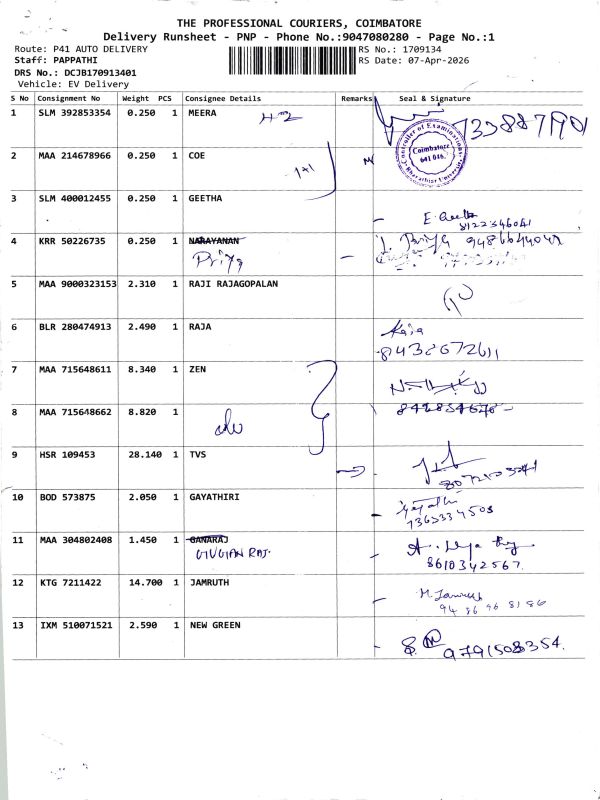 THE PROFESSIONAL COURIERS, COIMBATORE
Delivery Runsheet - PNP - Phone No.:9047080280 - Page No.:1
Route: P41 AUTO DELIVERY RS No.: 1709134
Staff: PAPPATHI RS Date: 07-Apr-2026
DRS No.: DCJB170913401
Vehicle: EV Delivery
S No Consignment No Weight PCS Consignee Details Remarks Seal & Signature
1 SLM 392853354 0.250 1 MEERA
Controller of Examinations
Coimbatore
641 046.
Bharathiar University
2 MAA 214678966 0.250 1 COE
1+1
3 SLM 400012455 0.250 1 GEETHA
E. Geetha
8122346041
4 KRR 50226735 0.250 1 NARAYANAN
Priya
I. Priya
5 MAA 9000323153 2.310 1 RAJI RAJAGOPALAN
6 BLR 280474913 2.490 1 RAJA
Raja
8432672611
7 MAA 715648611 8.340 1 ZEN
8 MAA 715648662 8.820 1
9 HSR 109453 28.140 1 TVS
10 BOD 573875 2.050 1 GAYATHIRI
11 MAA 304802408 1.450 1 GANARAJ
8610342567
12 KTG 7211422 14.700 1 JAMRUTH
94 86 96 81 86
13 IXM 510071521 2.590 1 NEW GREEN
9791508354.